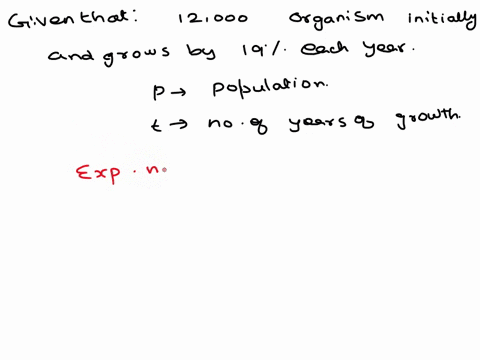 Given that: 12,000 organism initially
and grows by 19% each year.
P → Population.
t → no. of years of growth.
Exp. n